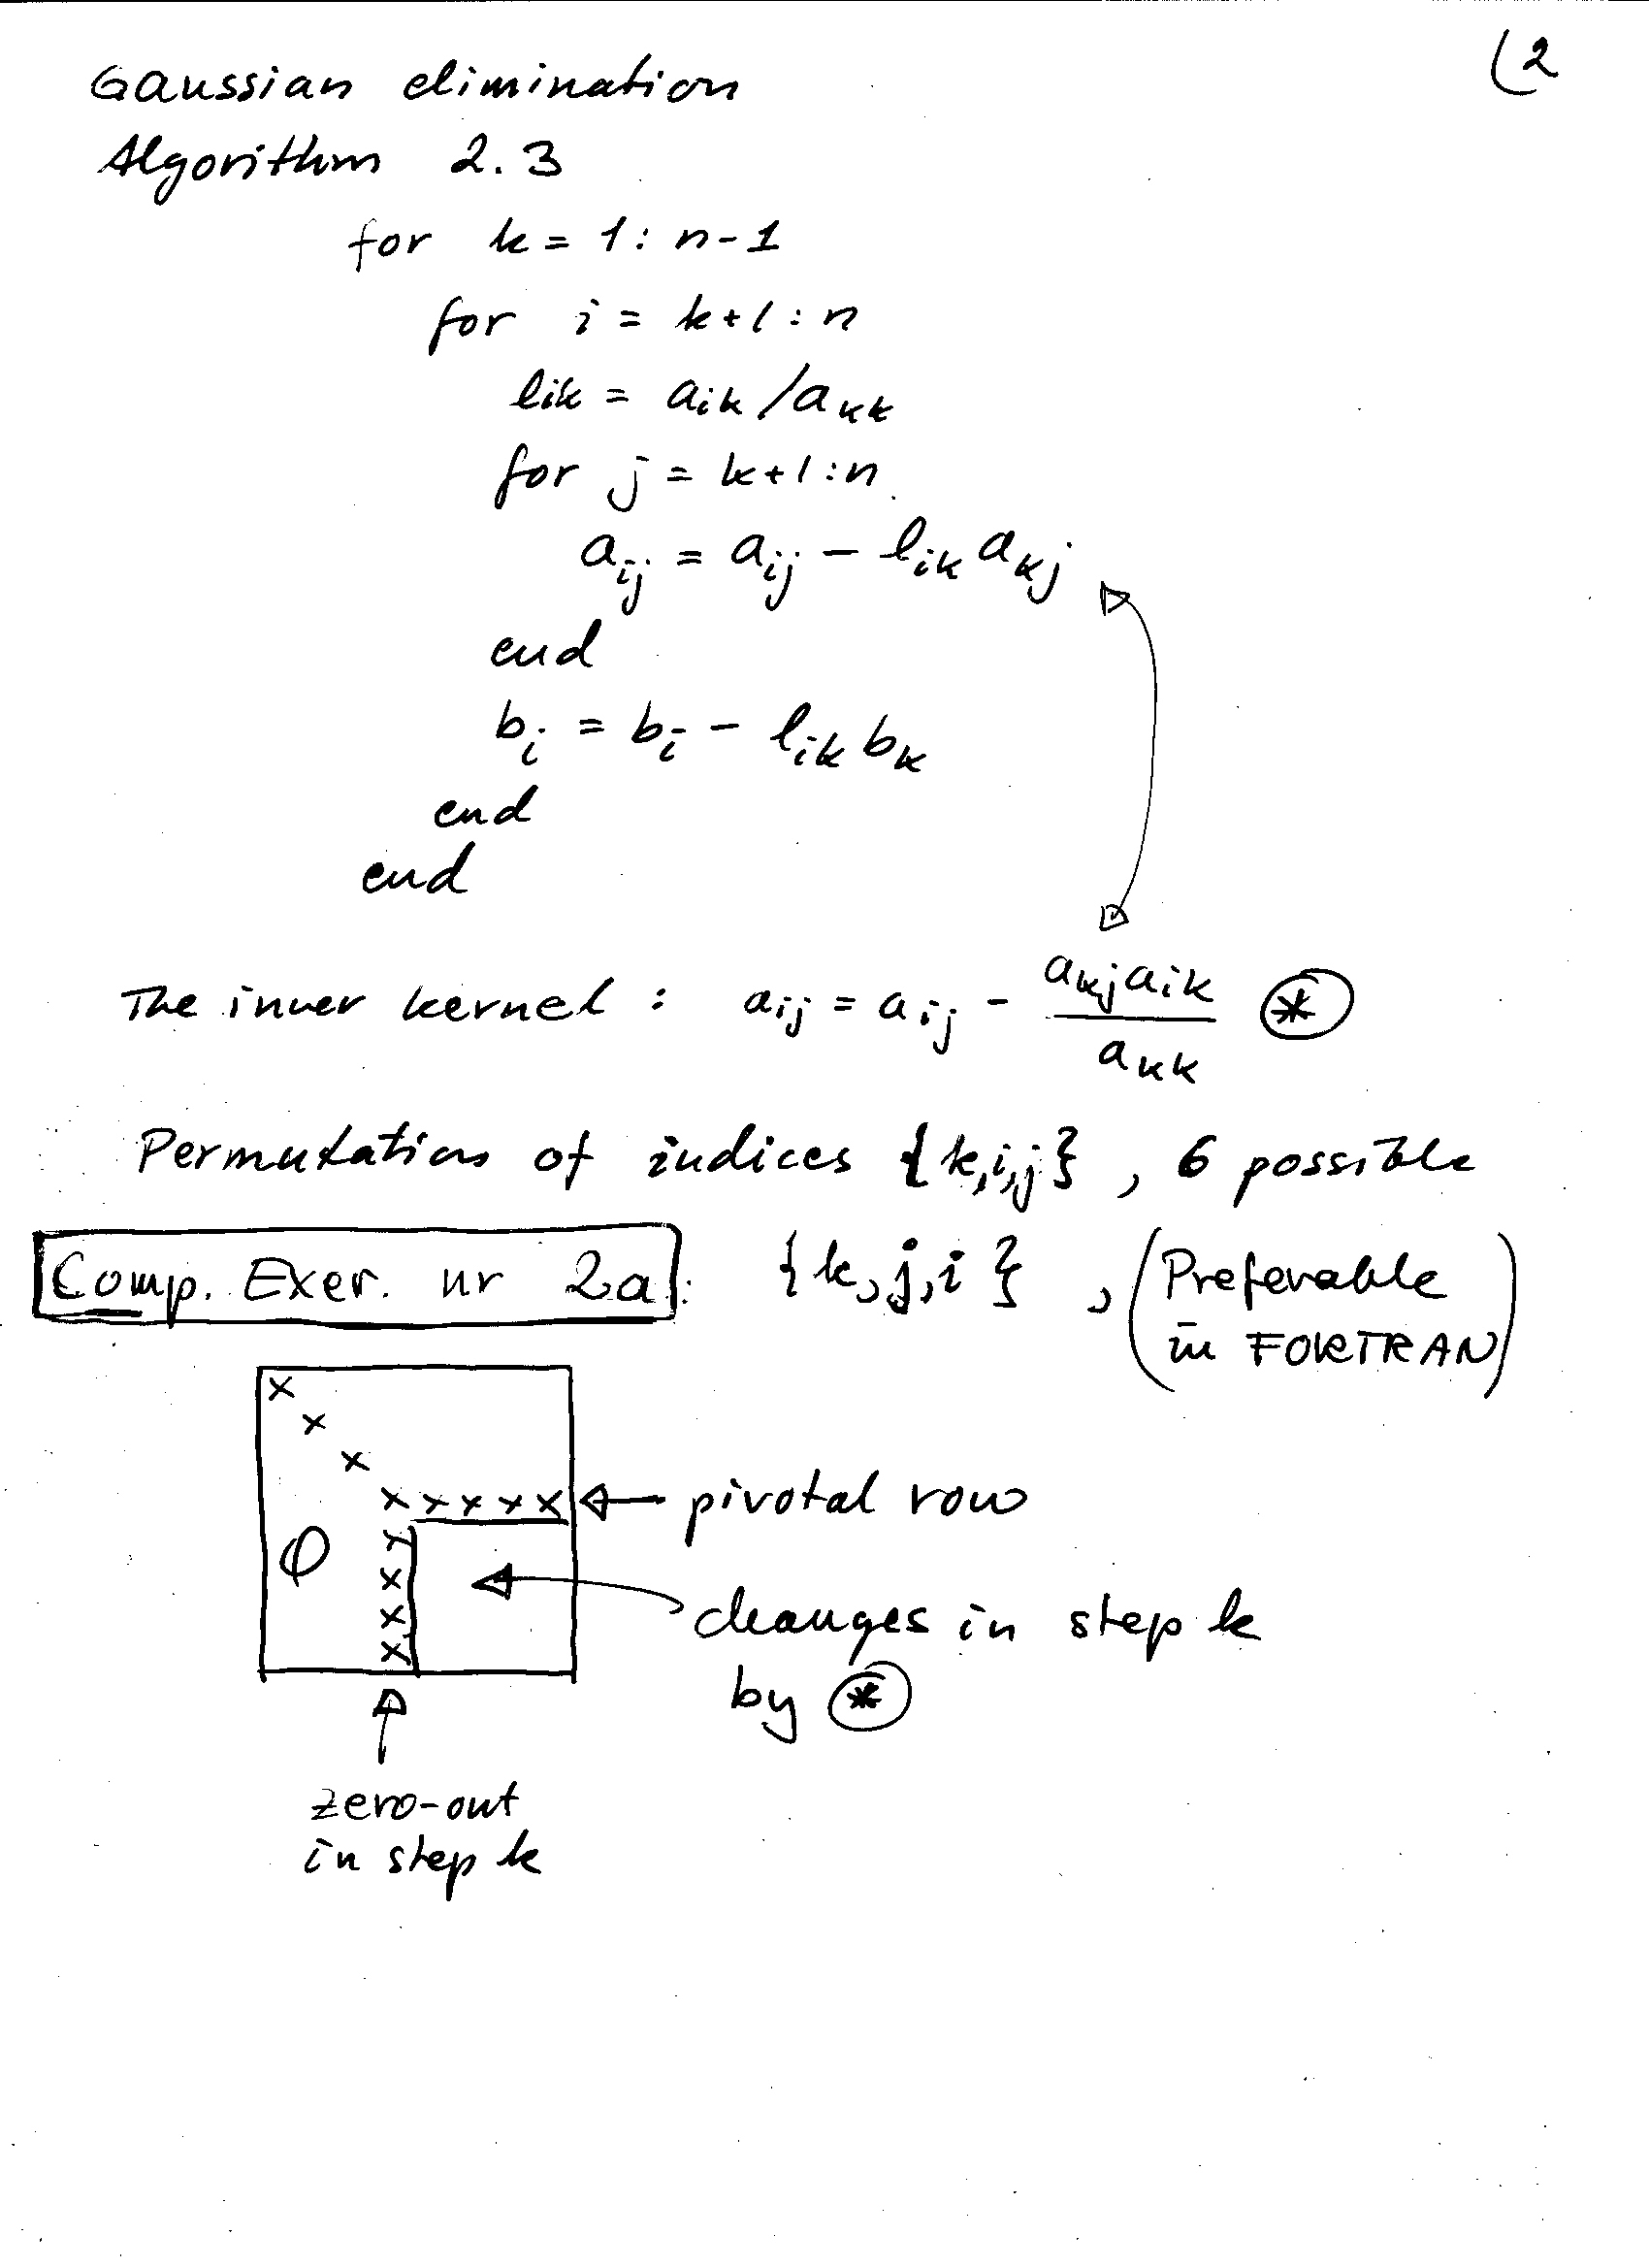 (2
Gaussian elimination
Algorithm 2.3
for k = 1 : n-1
for i = k+1 : n
lik = aik / akk
for j = k+1 : n
aij = aij - lik akj
end
bi = bi - lik bk
end
end
The inner kernel : aij = aij - akj aik / akk (*)
Permutations of indices {k,i,j} , 6 possible
Comp. Exer. nr 2a : {k,j,i} , (Preferable
in FORTRAN)
x
x
x
x x x x x ← pivotal row
0 x
x
x
x
changes in step k
by (*)
zero-out
in step k